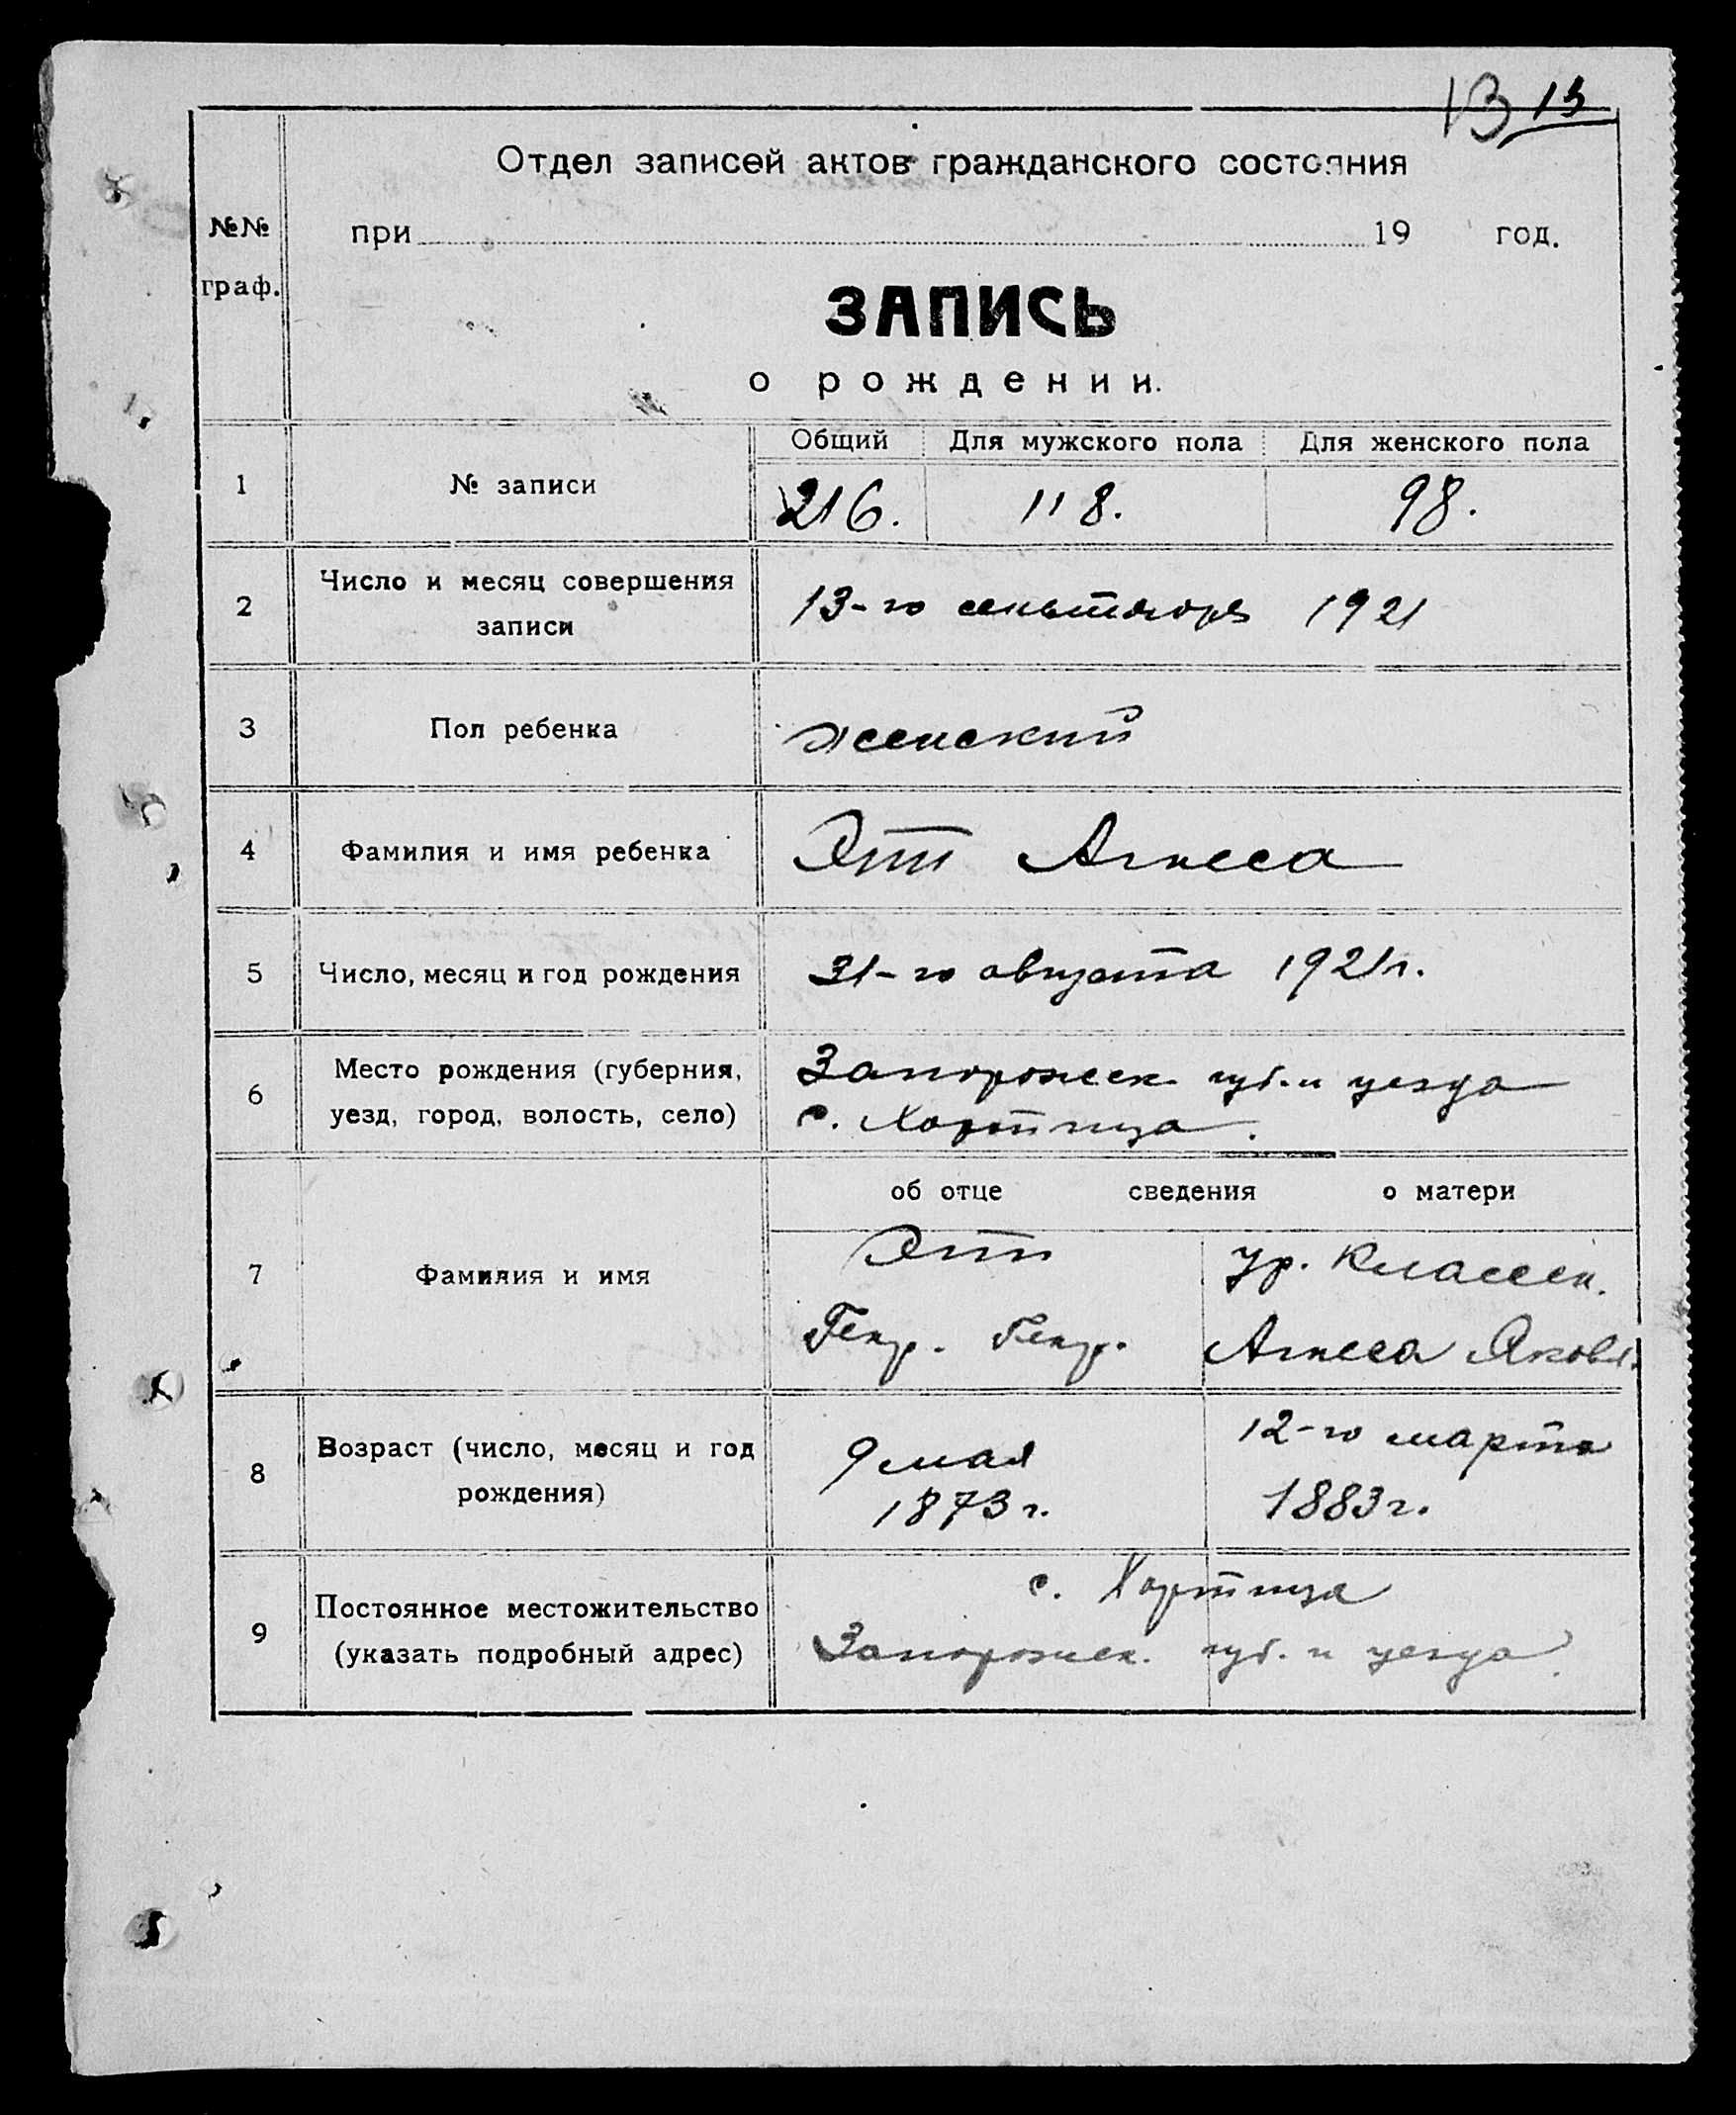 13 13
Отдел записей актов гражданского состояния
№№
граф.
при 19 год.
ЗАПИСЬ
о рождении.
Общий Для мужского пола Для женского пола
1 № записи 216. 118. 98.
2 Число и месяц совершения
записи
13-го сентября 1921
3 Пол ребенка женский
4 Фамилия и имя ребенка Эпп Агнеса
5 Число, месяц и год рождения 31-го августа 1921 г.
6 Место рождения (губерния,
уезд, город, волость, село)
Запорожск. губ. и уезда
с. Хортица.
об отце сведения о матери
7 Фамилия и имя
Эпп
Генр. Генр.
ур. Классен.
Агнеса Яковл.
8 Возраст (число, месяц и год
рождения)
9 мая
1873 г.
12-го марта
1883 г.
9 Постоянное местожительство
(указать подробный адрес)
с. Хортица
Запорожск. губ. и уезда.